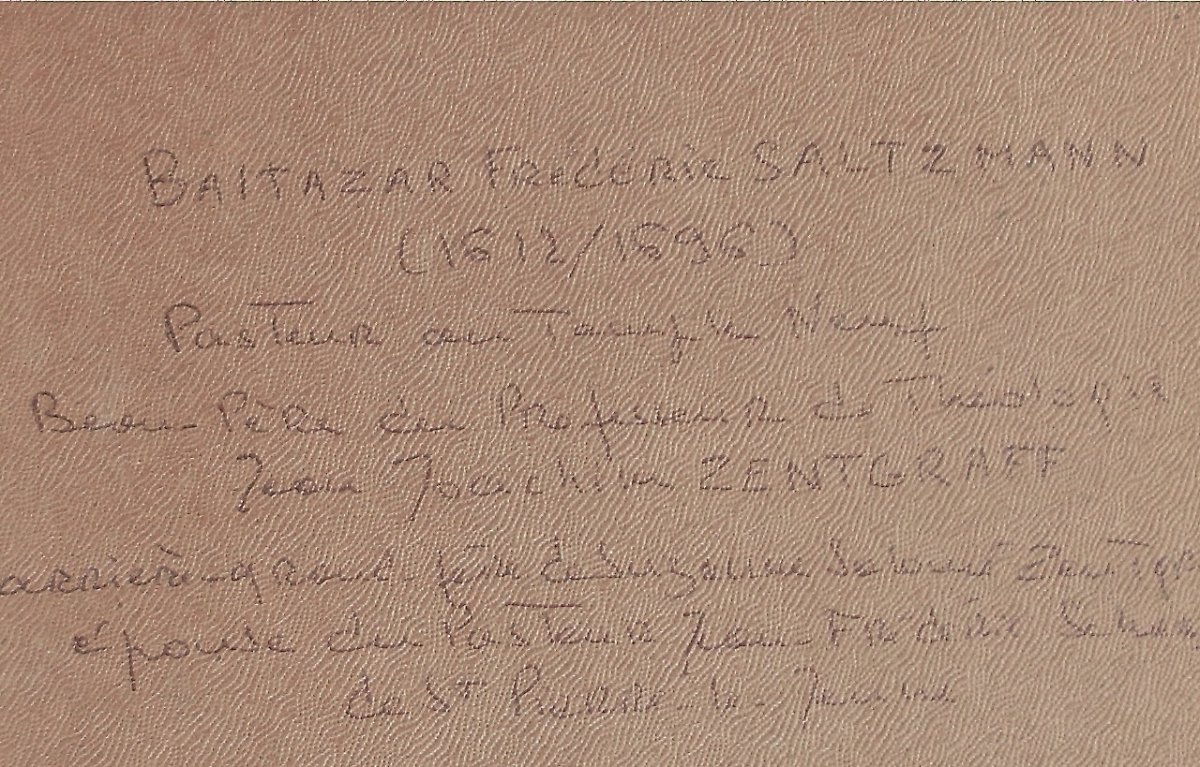 BALTAZAR FRÉDÉRIC SALTZMANN
(1612/1696)
Pasteur au Temple Neuf
Beau-Père du Professeur de Théologie
Jean Joachim ZENTGRAFF
arrière-grand-père de Suzanne Zentgr
épouse du Pasteur Jean Frédéric
de St Pierre-le-Jeune